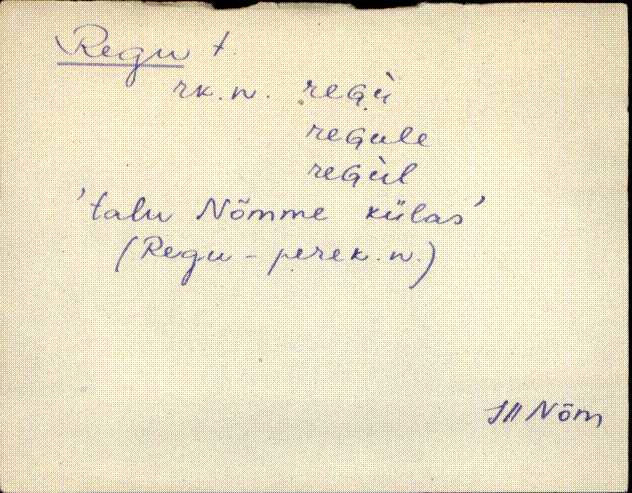 Regu t.
rk. n. reGù
reGule
reGùl
'talu Nõmme külas'
(Regu - perek. n.)
Jll Nõm